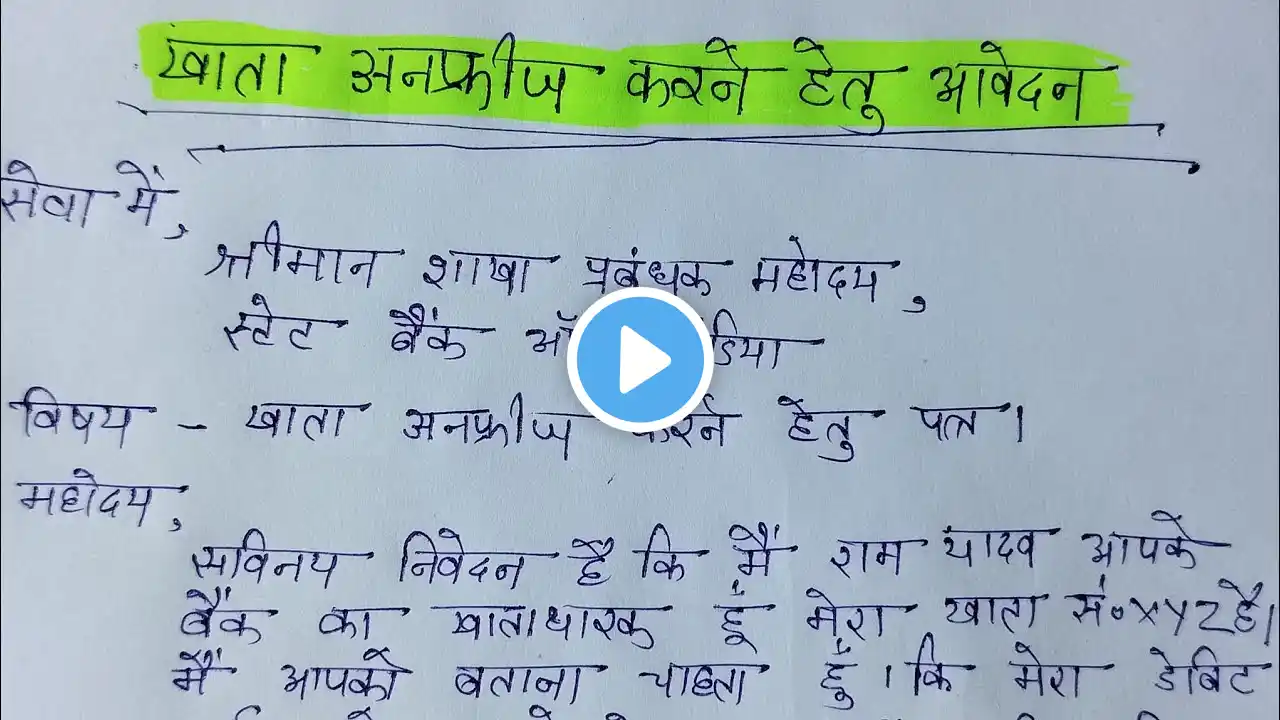 खाता अनफ्रीज करने हेतु आवेदन
सेवा में,
श्रीमान शाखा प्रबंधक महोदय,
स्टेट बैंक
विषय - खाता अनफ्रीज करने हेतु पत्र।
महोदय,
सविनय निवेदन है कि मैं राम यादव आपके
बैंक का खाताधारक हूं मेरा खाता सं०xyz है।
मैं आपको बताना चाहता हूँ। कि मेरा डेबिट